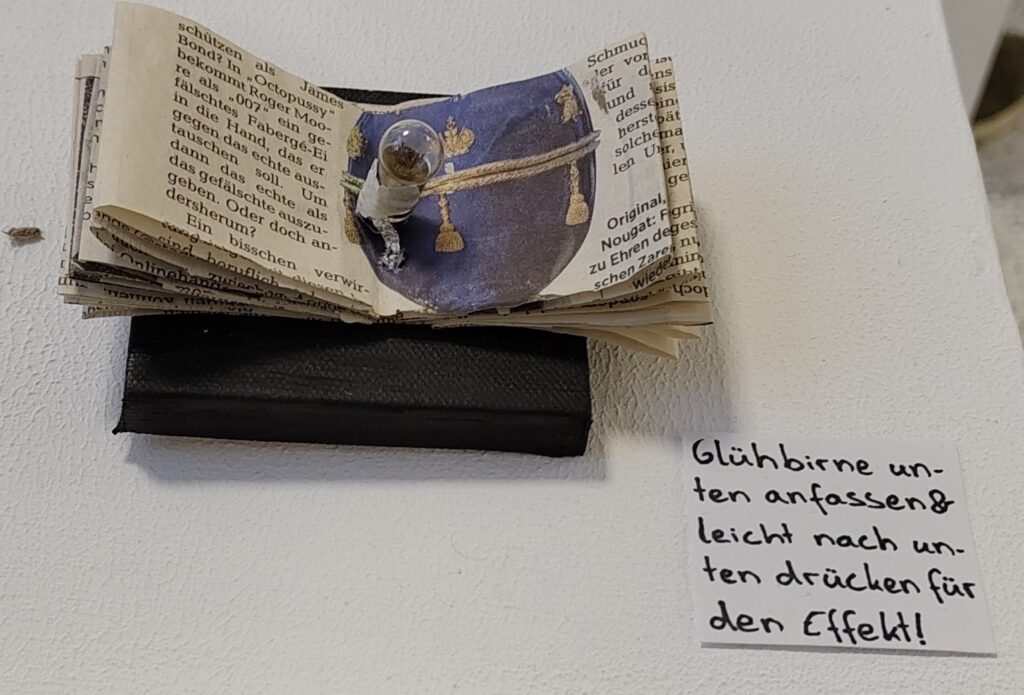 schützen als James
Bond? In „Octopussy"
bekommt Roger Moo-
re als „007" ein ge-
fälschtes Fabergé-Ei
in die Hand, das er
gegen das echte aus-
tauschen soll. Um
dann das echte als
das gefälschte auszu-
geben. Oder doch an-
dersherum?
Ein bisschen verwir-
Schmuc
der vor
für d
und
desse
herst
solche
len Uhr,
Original,
Nougat: F
zu Ehren de
schen Zare
Glühbirne un-
ten anfassen&
leicht nach un-
ten drücken für
den Effekt!